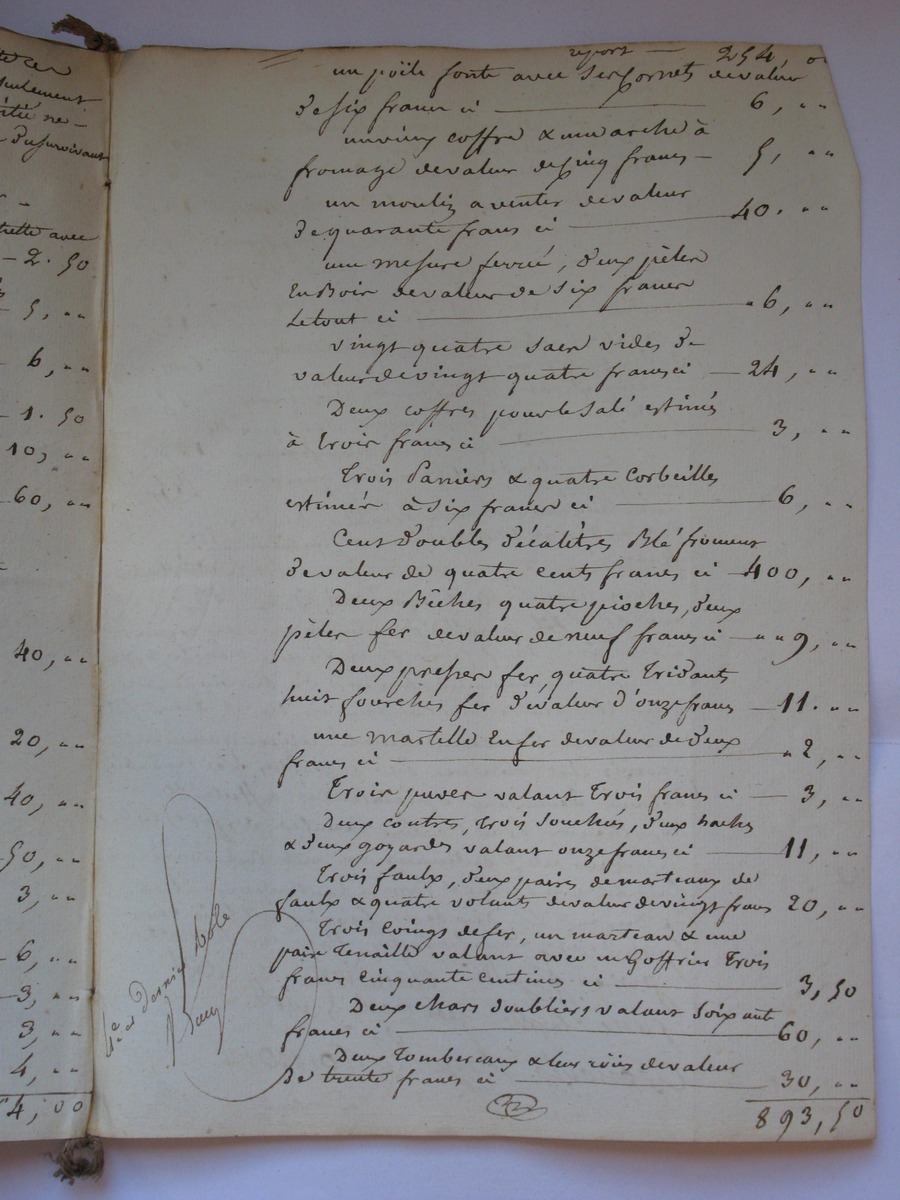 report — 254, 00
un poële fonte avec ses Cornets de valeur
de six francs ci — 6, "
un vieux coffre & une arche à
fromage de valeur de Cinq francs — 5, "
un moulin a venter de valeur
de quarante francs ci — 40. "
une mesure ferrée, deux pèles
En Bois de valeur de Six francs
le tout ci — 6, "
vingt quatre sacs vides de
valeur de vingt quatre francs ci — 24, "
Deux coffres pour le Salé estimés
à trois francs ci — 3, "
Trois Paniers & quatre Corbeilles
estimés à six francs ci — 6, "
Cent doubles décalitres Blé froment
de valeur de quatre cents francs ci — 400, "
Deux Bêches quatre pioches, deux
pèles fer de valeur de neuf francs ci — " 9, "
Deux fer, quatre Tridants
huit fourches fer de valeur d'onze francs — 11. "
une martelle En fer de valeur de deux
francs ci — " 2, "
Trois valant Trois francs ci — 3, "
Deux coutres, trois, deux haches
& deux goyardes valant onze francs ci — 11, "
Trois faulx, deux paires de marteaux de
faulx & quatre volants de valeur de vingt francs 20, "
Trois Coings de fer, un marteau & une
paire Tenaille valant avec un Trois
francs Cinquante centimes ci — 3, 50
Deux chars doubliers valant Soixante
francs ci — 60, "
Deux Tombereaux & leur de valeur
De trente francs ci — 30, "
893, 50
4e et Dernier Rôle
2. 50
5, "
6, "
1. 50
10, "
60, "
40, "
20, "
40, "
50, "
3, "
6, "
3, "
3, "
4, "
4, 00